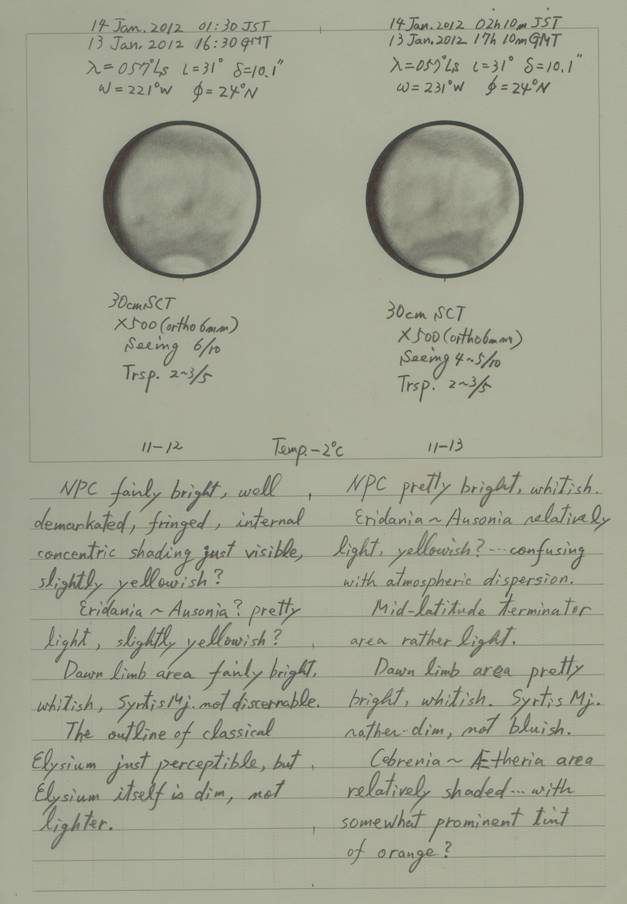 14 Jan. 2012 01:30 JST
13 Jan. 2012 16:30 GMT
λ=057°Ls ι=31° δ=10.1"
ω=221°W φ=24°N
30cm SCT
×500 (ortho 6mm)
Seeing 6/10
Trsp. 2~3/5
11-12
14 Jan. 2012 02h10m JST
13 Jan. 2012 17h10m GMT
λ=057°Ls ι=31° δ=10.1"
ω=231°W φ=24°N
30cm SCT
×500 (ortho 6mm)
Seeing 4~5/10
Trsp. 2~3/5
11-13
Temp. -2°C
NPC fairly bright, well
demarkated, fringed, internal
concentric shading just visible,
slightly yellowish?
Eridania ~ Ausonia? pretty
light, slightly yellowish?
Dawn limb area fairly bright,
whitish, Syrtis Mj. not discernable.
The outline of classical
Elysium just perceptible, but
Elysium itself is dim, not
lighter.
NPC pretty bright, whitish.
Eridania ~ Ausonia relatively
light, yellowish? ... confusing
with atmospheric dispersion.
Mid-latitude terminator
area rather light.
Dawn limb area pretty
bright, whitish. Syrtis Mj.
rather dim, not bluish.
Cebrenia ~ Ætheria area
relatively shaded ... with
somewhat prominent tint
of orange?